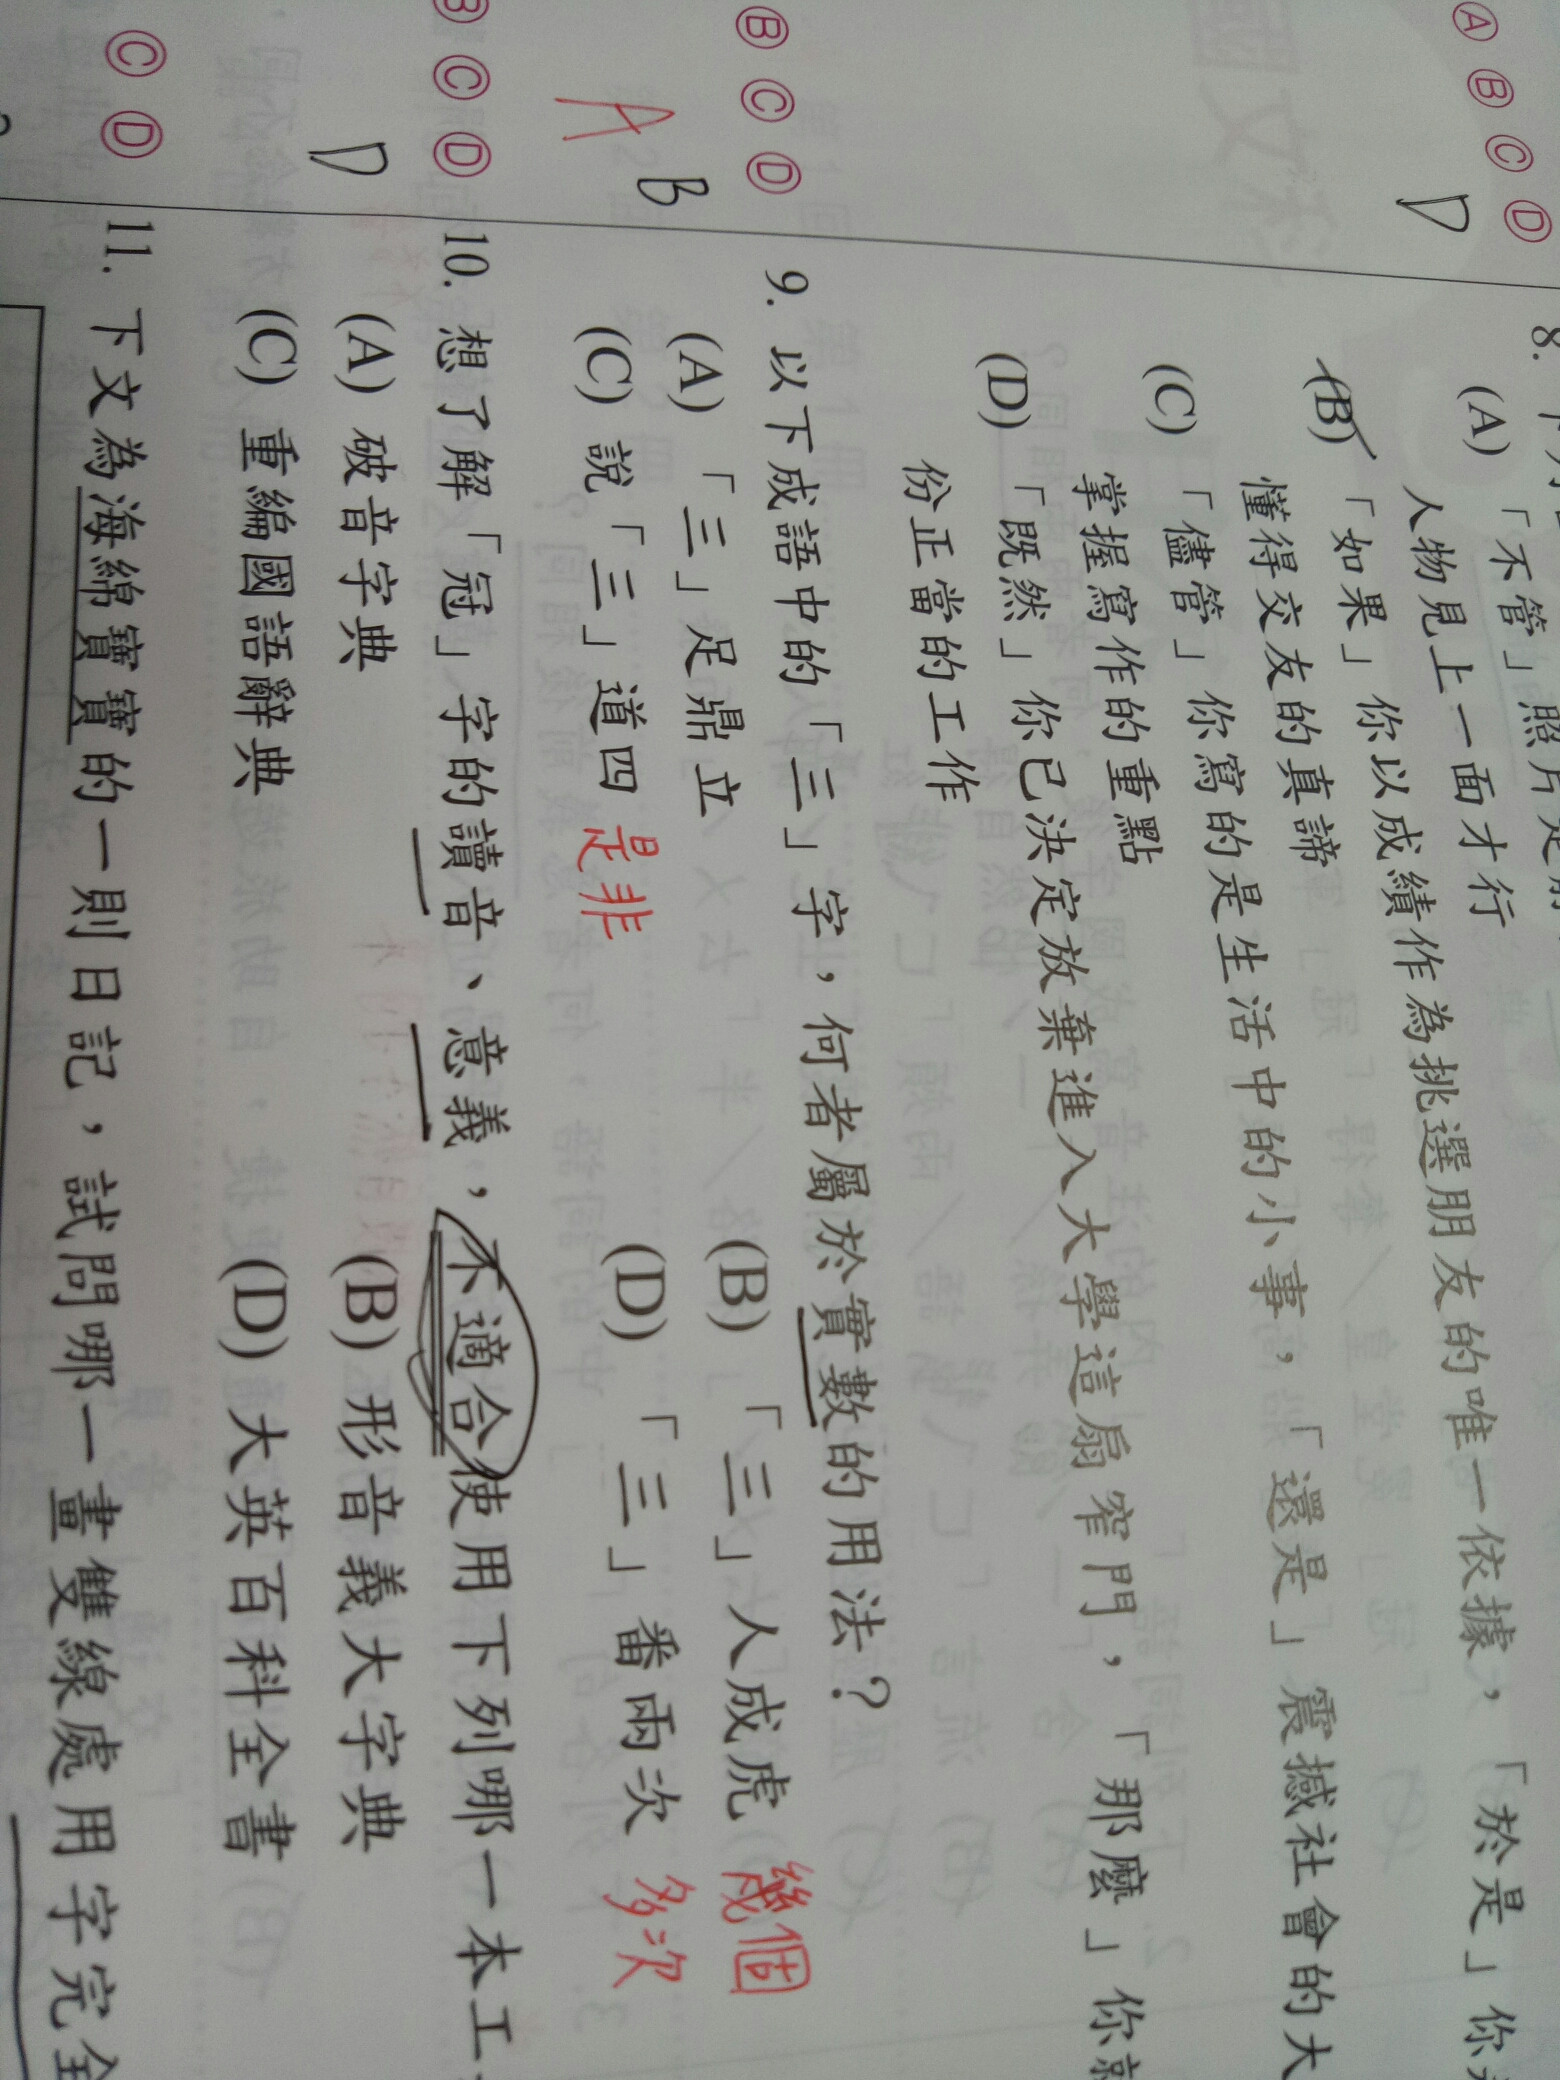 Ⓐ Ⓑ Ⓒ Ⓓ
D
8.
(A) 「不管」照片是
人物見上一面才行
「於是」你
(B) 「如果」你以成績作為挑選朋友的唯一依據,
懂得交友的真諦
(C) 「儘管」你寫的是生活中的小事,「還是」震撼社會的大
掌握寫作的重點
(D) 「既然」你已決定放棄進入大學這扇窄門,「那麼」你就
份正當的工作
Ⓑ Ⓒ Ⓓ
B
A
9. 以下成語中的「三」字,何者屬於實數的用法?
(A) 「三」足鼎立 (B) 「三」人成虎 幾個
(C) 說「三」道四 是非 (D) 「三」番兩次 多次
Ⓑ Ⓒ Ⓓ
D
10. 想了解「冠」字的讀音、意義,不適合使用下列哪一本工
(A) 破音字典 (B) 形音義大字典
(C) 重編國語辭典 (D) 大英百科全書
Ⓒ Ⓓ
11. 下文為海綿寶寶的一則日記,試問哪一畫雙線處用字完全
國文科